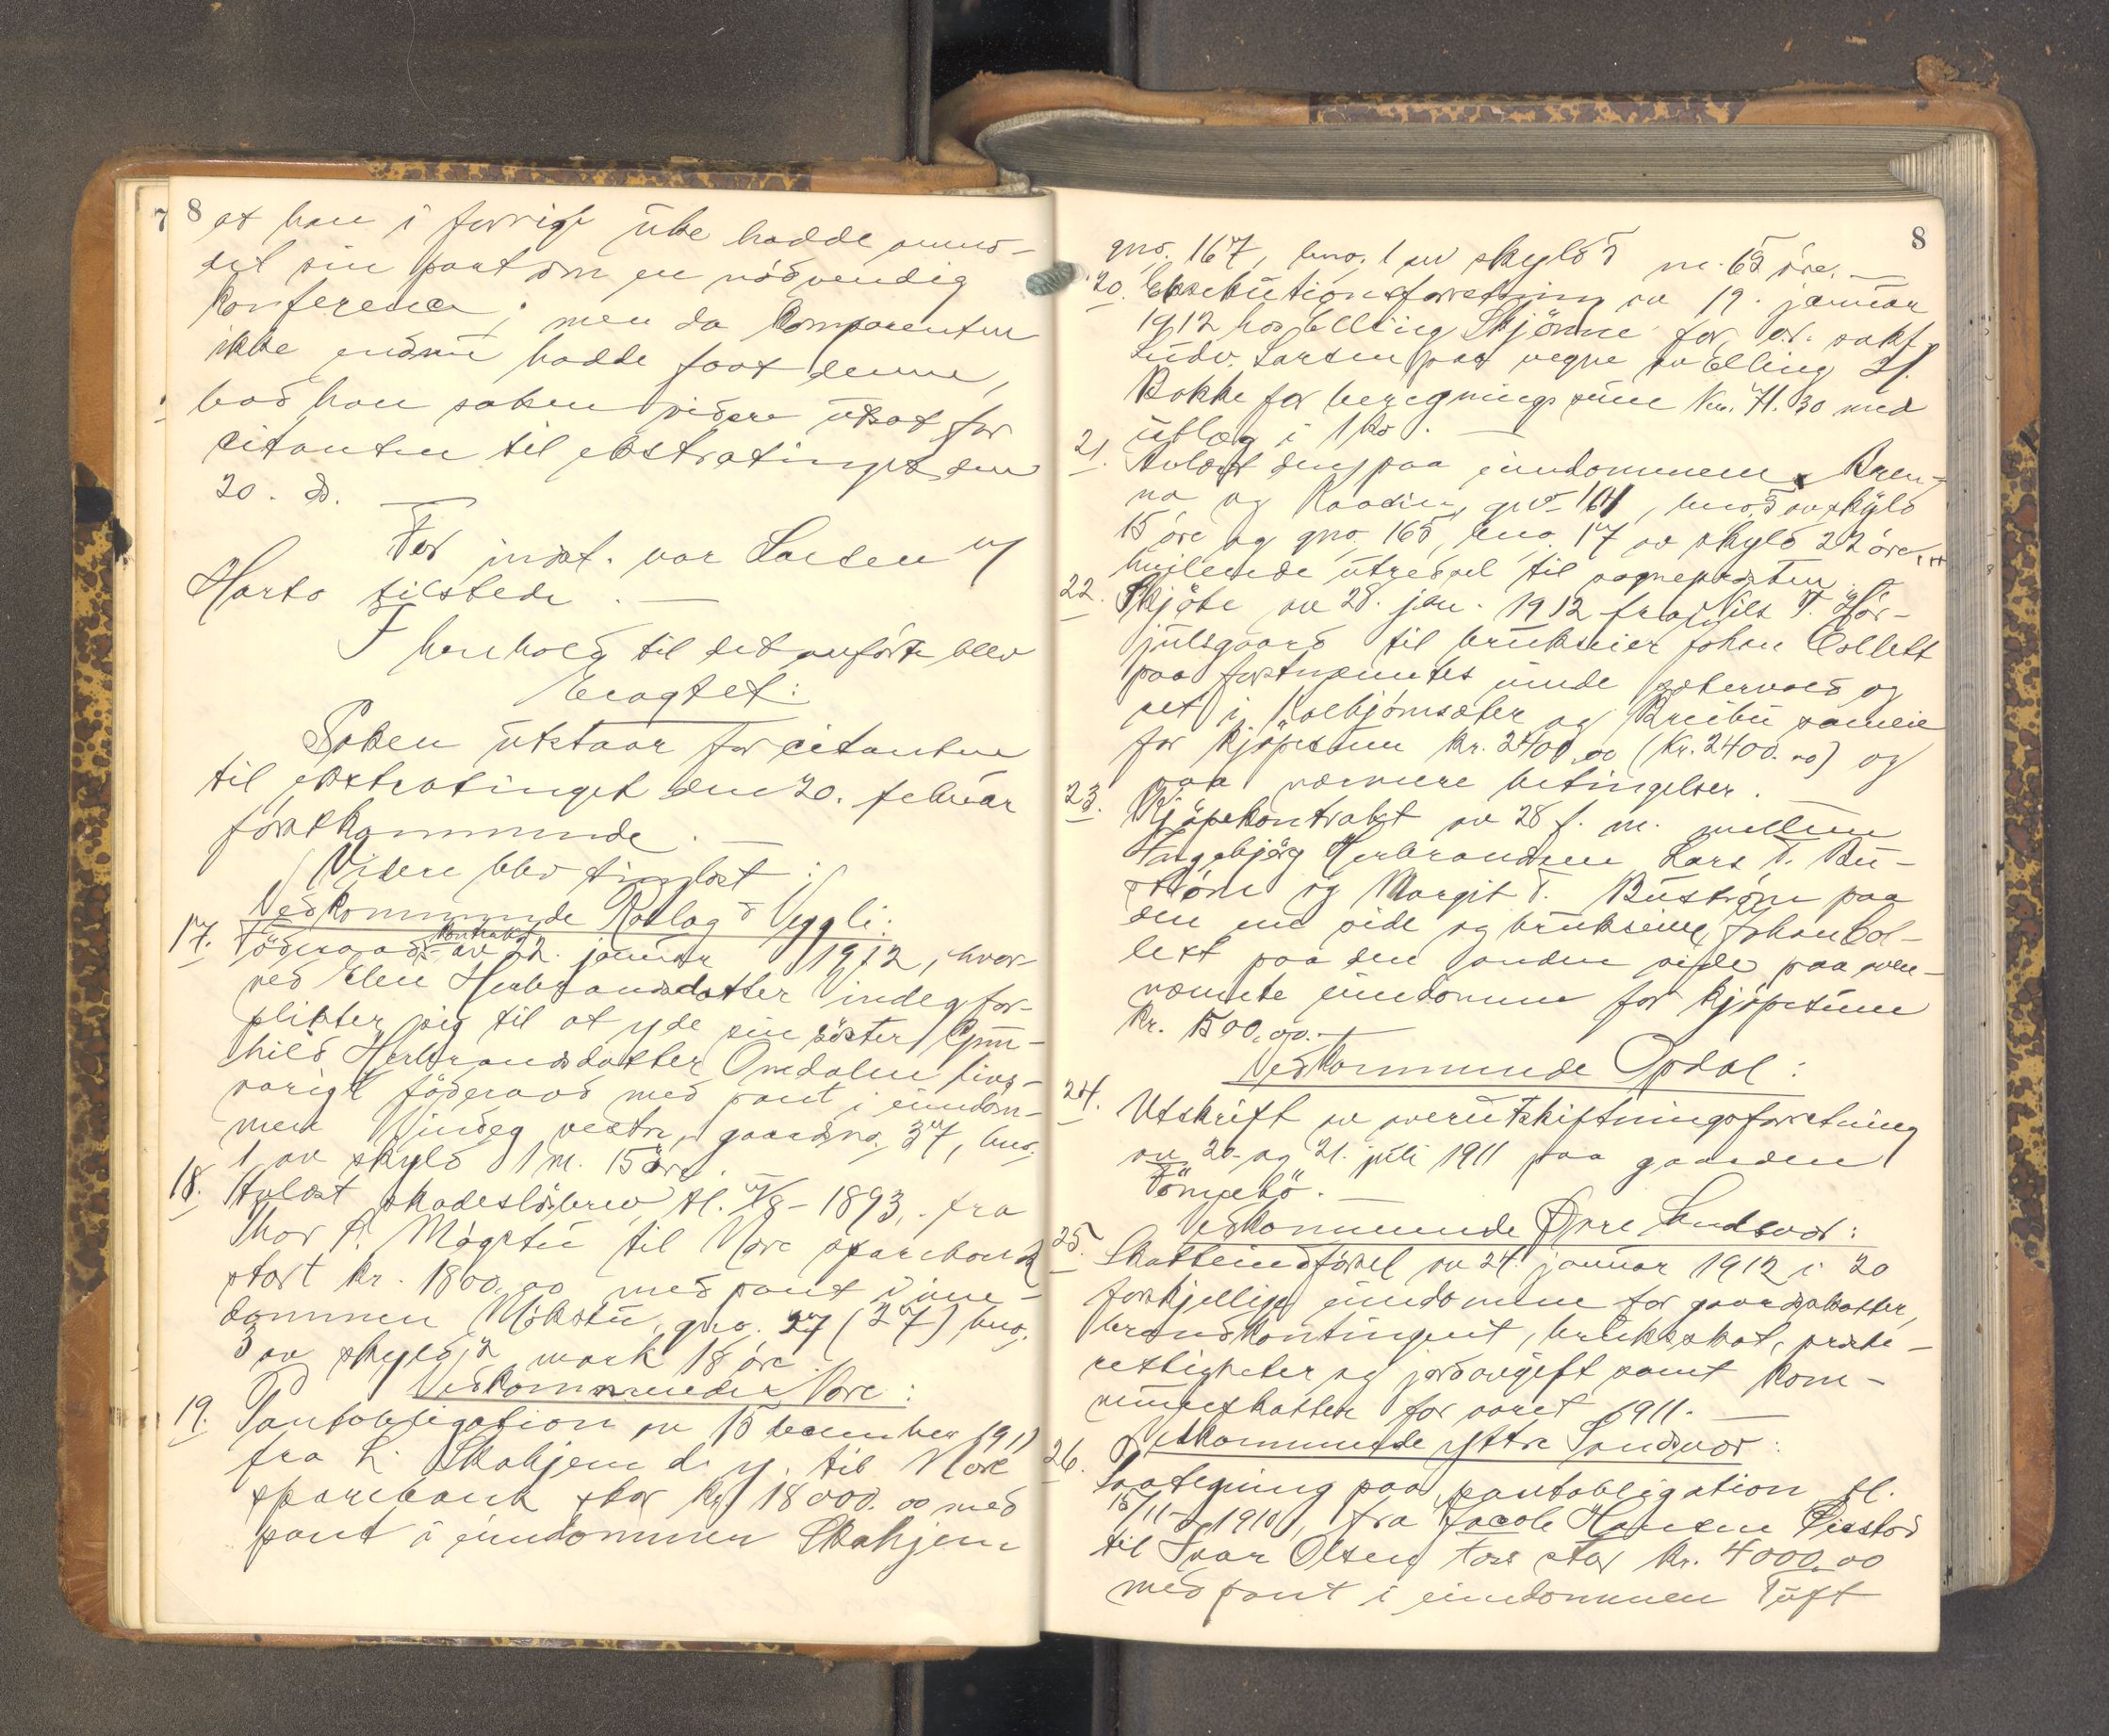 7 8
at han i forrige uke hadde anmo-
det sin part om en nødvendig
konference; men da komparenten
ikke endnu hadde faat denne,
bad han saken videre utsat for
citanten til ekstratinget den
20. ds.
For indst. var Larsen
Harto tilstede.
I henhold til det anførte blev
Eragtet:
Saken utstaar for citanten
til ekstratinget den 20. februar
førstkommende.
Videre blev tinglæst:
Vedkommende Rollag & Veggli:
17. Föderaads kontrakt av 22. januar 1912, hvor-
ved Elen Herbrandsdatter Vindeg for-
plikter sig til at yde sin söster Gun-
hild Herbrandsdatter Omdalen livs-
varigt föderaad med pant i eiendom-
men Vindeg vestre, gaardsno. 37, bno.
1 av skyld 1 m. 15 öre.
18. Avlæst skadeslösbrev tl. 7/8-1893, fra
Thor P. Mögstu til Nore sparebank
stort kr. 1800.00 med pant i eien-
dommen Mökstu, gno. 27 (37) bno.
3 av skyld mark 18 öre.
Vedkommende Nore:
19. Pantobligation av 15 december 1911
fra L. Skahjem d. y. til Nore
sparebank stor kr. 18000.00 med
pant i eiendommen Skahjem
8
gno. 167, bno. 1 av skyld m. 65 öre.
20. Eksekutionsforretning av 19. januar
1912 hos Elling Skjönne for o.r. sakf.
Ludv. Larsen paa vegne av Elling H.
Bakke for beregningssum kr. 71.30 med
utlæg i 1 ko.
21. Avlæst den paa eiendommene Bren-
na og Raadin, gno 164, bno. 5 av skyld
15 öre og gno. 165, bno. 17 av skyld 22 öre,
hvilende utredsel til sognepresten.
22. Skjöte av 28. jan. 1912 fra Nils T. Hör-
julsgaard til brukseier Johan Collett
paa fostnævntes sætervold og
ret i Kolbjörnsæter og Breibu sameie
for kjöpesum kr. 2400.00 (kr. 2400.00) og
paa nærmere betingelser.
23. Kjöpekontrakt av 28 f. m. mellem
Ingebjörg Herbrandsen, Lars T. Bu-
ström og Margit T. Buström paa
den ene side og brukseier Johan Col-
lett paa den anden side paa oven-
nævnte eiendomme for kjöpesum
kr. 1500.00.
Vedkommende Opdal:
24. Utskrift av overutskiftningsforretning
av 20. og 21. juli 1911 paa gaarden
Tömmebö.
Vedkommende Øvre Sandsvær:
25. Skatteindförsel av 24. januar 1912 i 20
forskjellige eiendomme for gaardsskatter,
brandkontingent, bruksskat, preste-
rettigheter og jordavgift samt kom-
muneskatter for aaret 1911.
Vedkommende Yttre Sandsvær:
26. Paategning paa pantobligation tl.
15/11-1910, fra Jacob Hansen
til Ivar Olsen stor kr. 4000.00
med pant i eiendommen Tuft